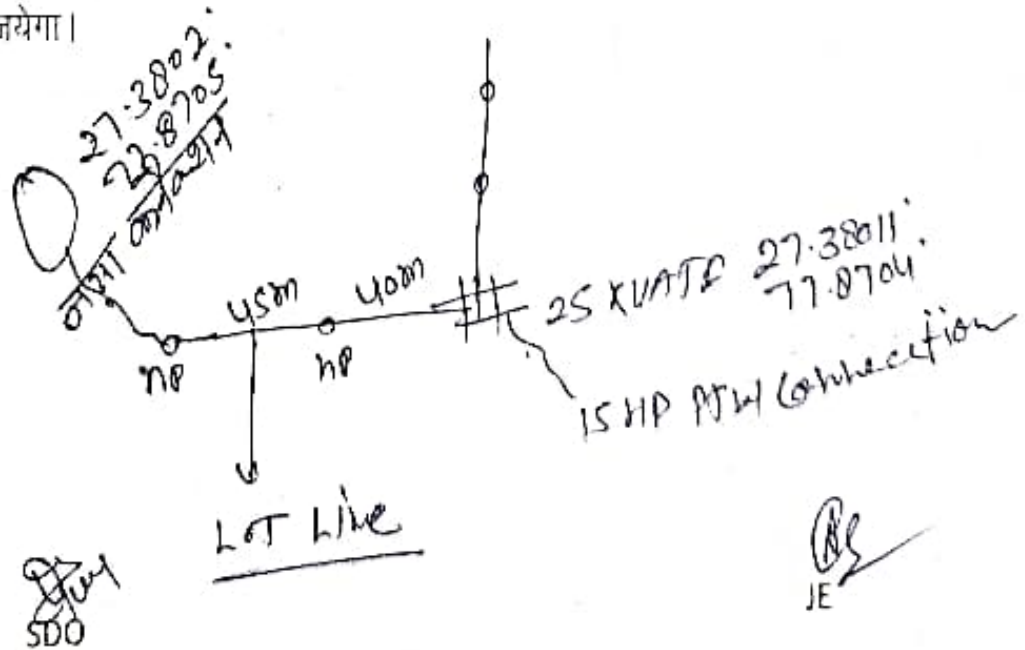 जयेगा।
27.3802
77.8705
45m
40m
np
np
25 KVA TF 27.38011
77.8704
15 HP PTW Connecition
LOT Line
SDO
JE